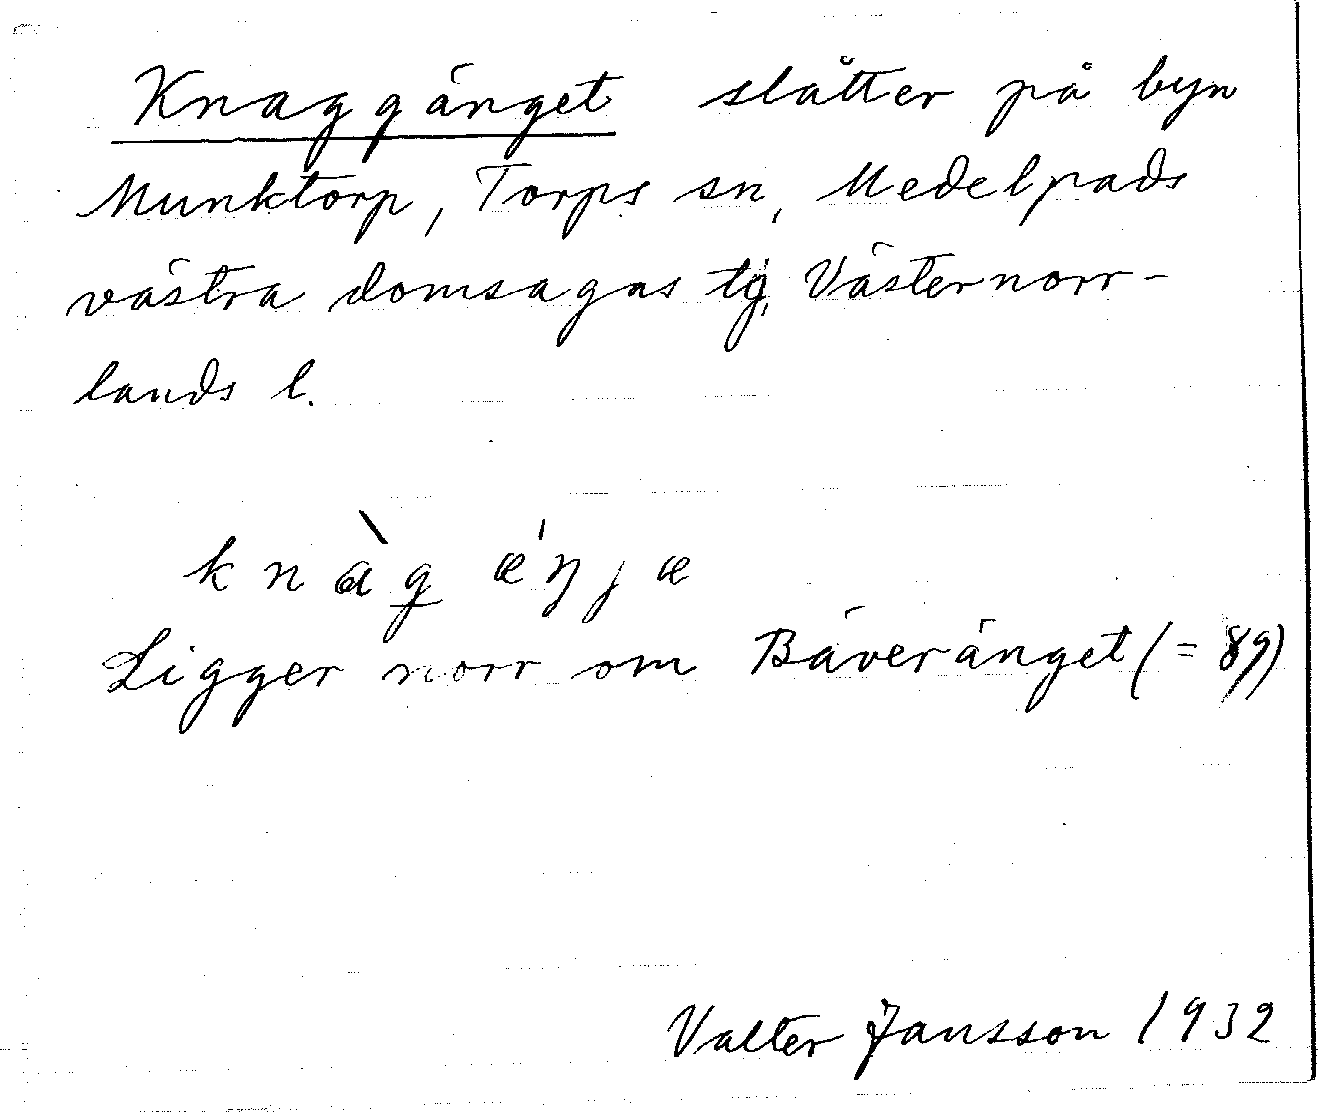 Knaggänget slåtter på byn
Munktorp, Torps sn, Medelpads
västra domsagas tg, Västernorr-
lands l.
knàg æ'ŋjæ
Ligger norr om Bäveränget (= 89)
Valter Jansson 1932